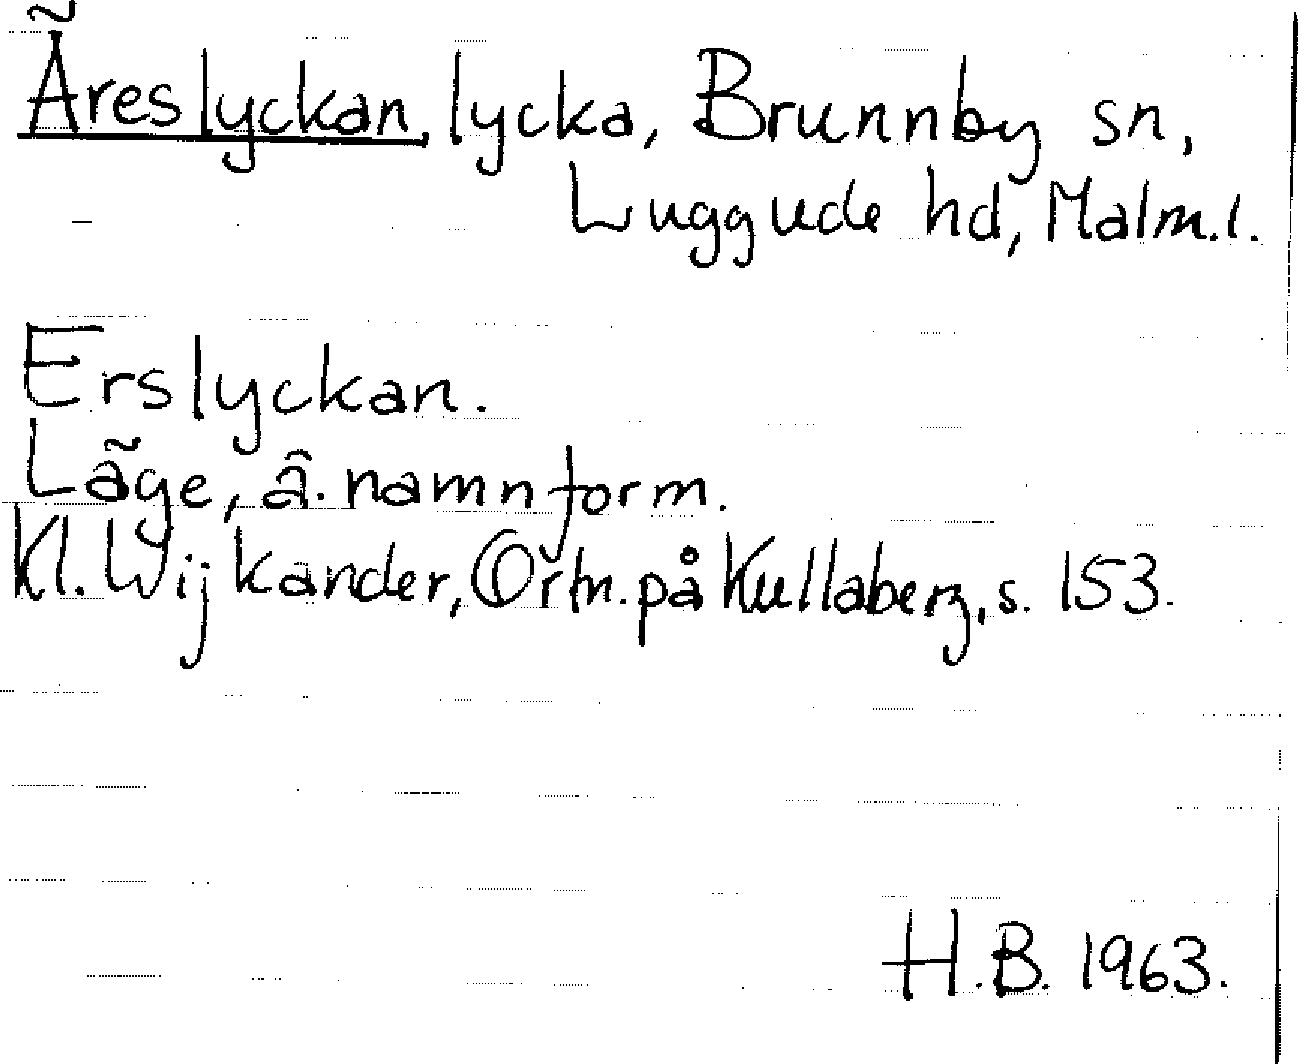 Äreslyckan, lycka, Brunnby sn,
Luggude hd, Malm.l.
Erslyckan.
Läge, ä. namnform.
Kl. Wijkander, Ortn. på Kullaberg, s. 153.
H.B. 1963.